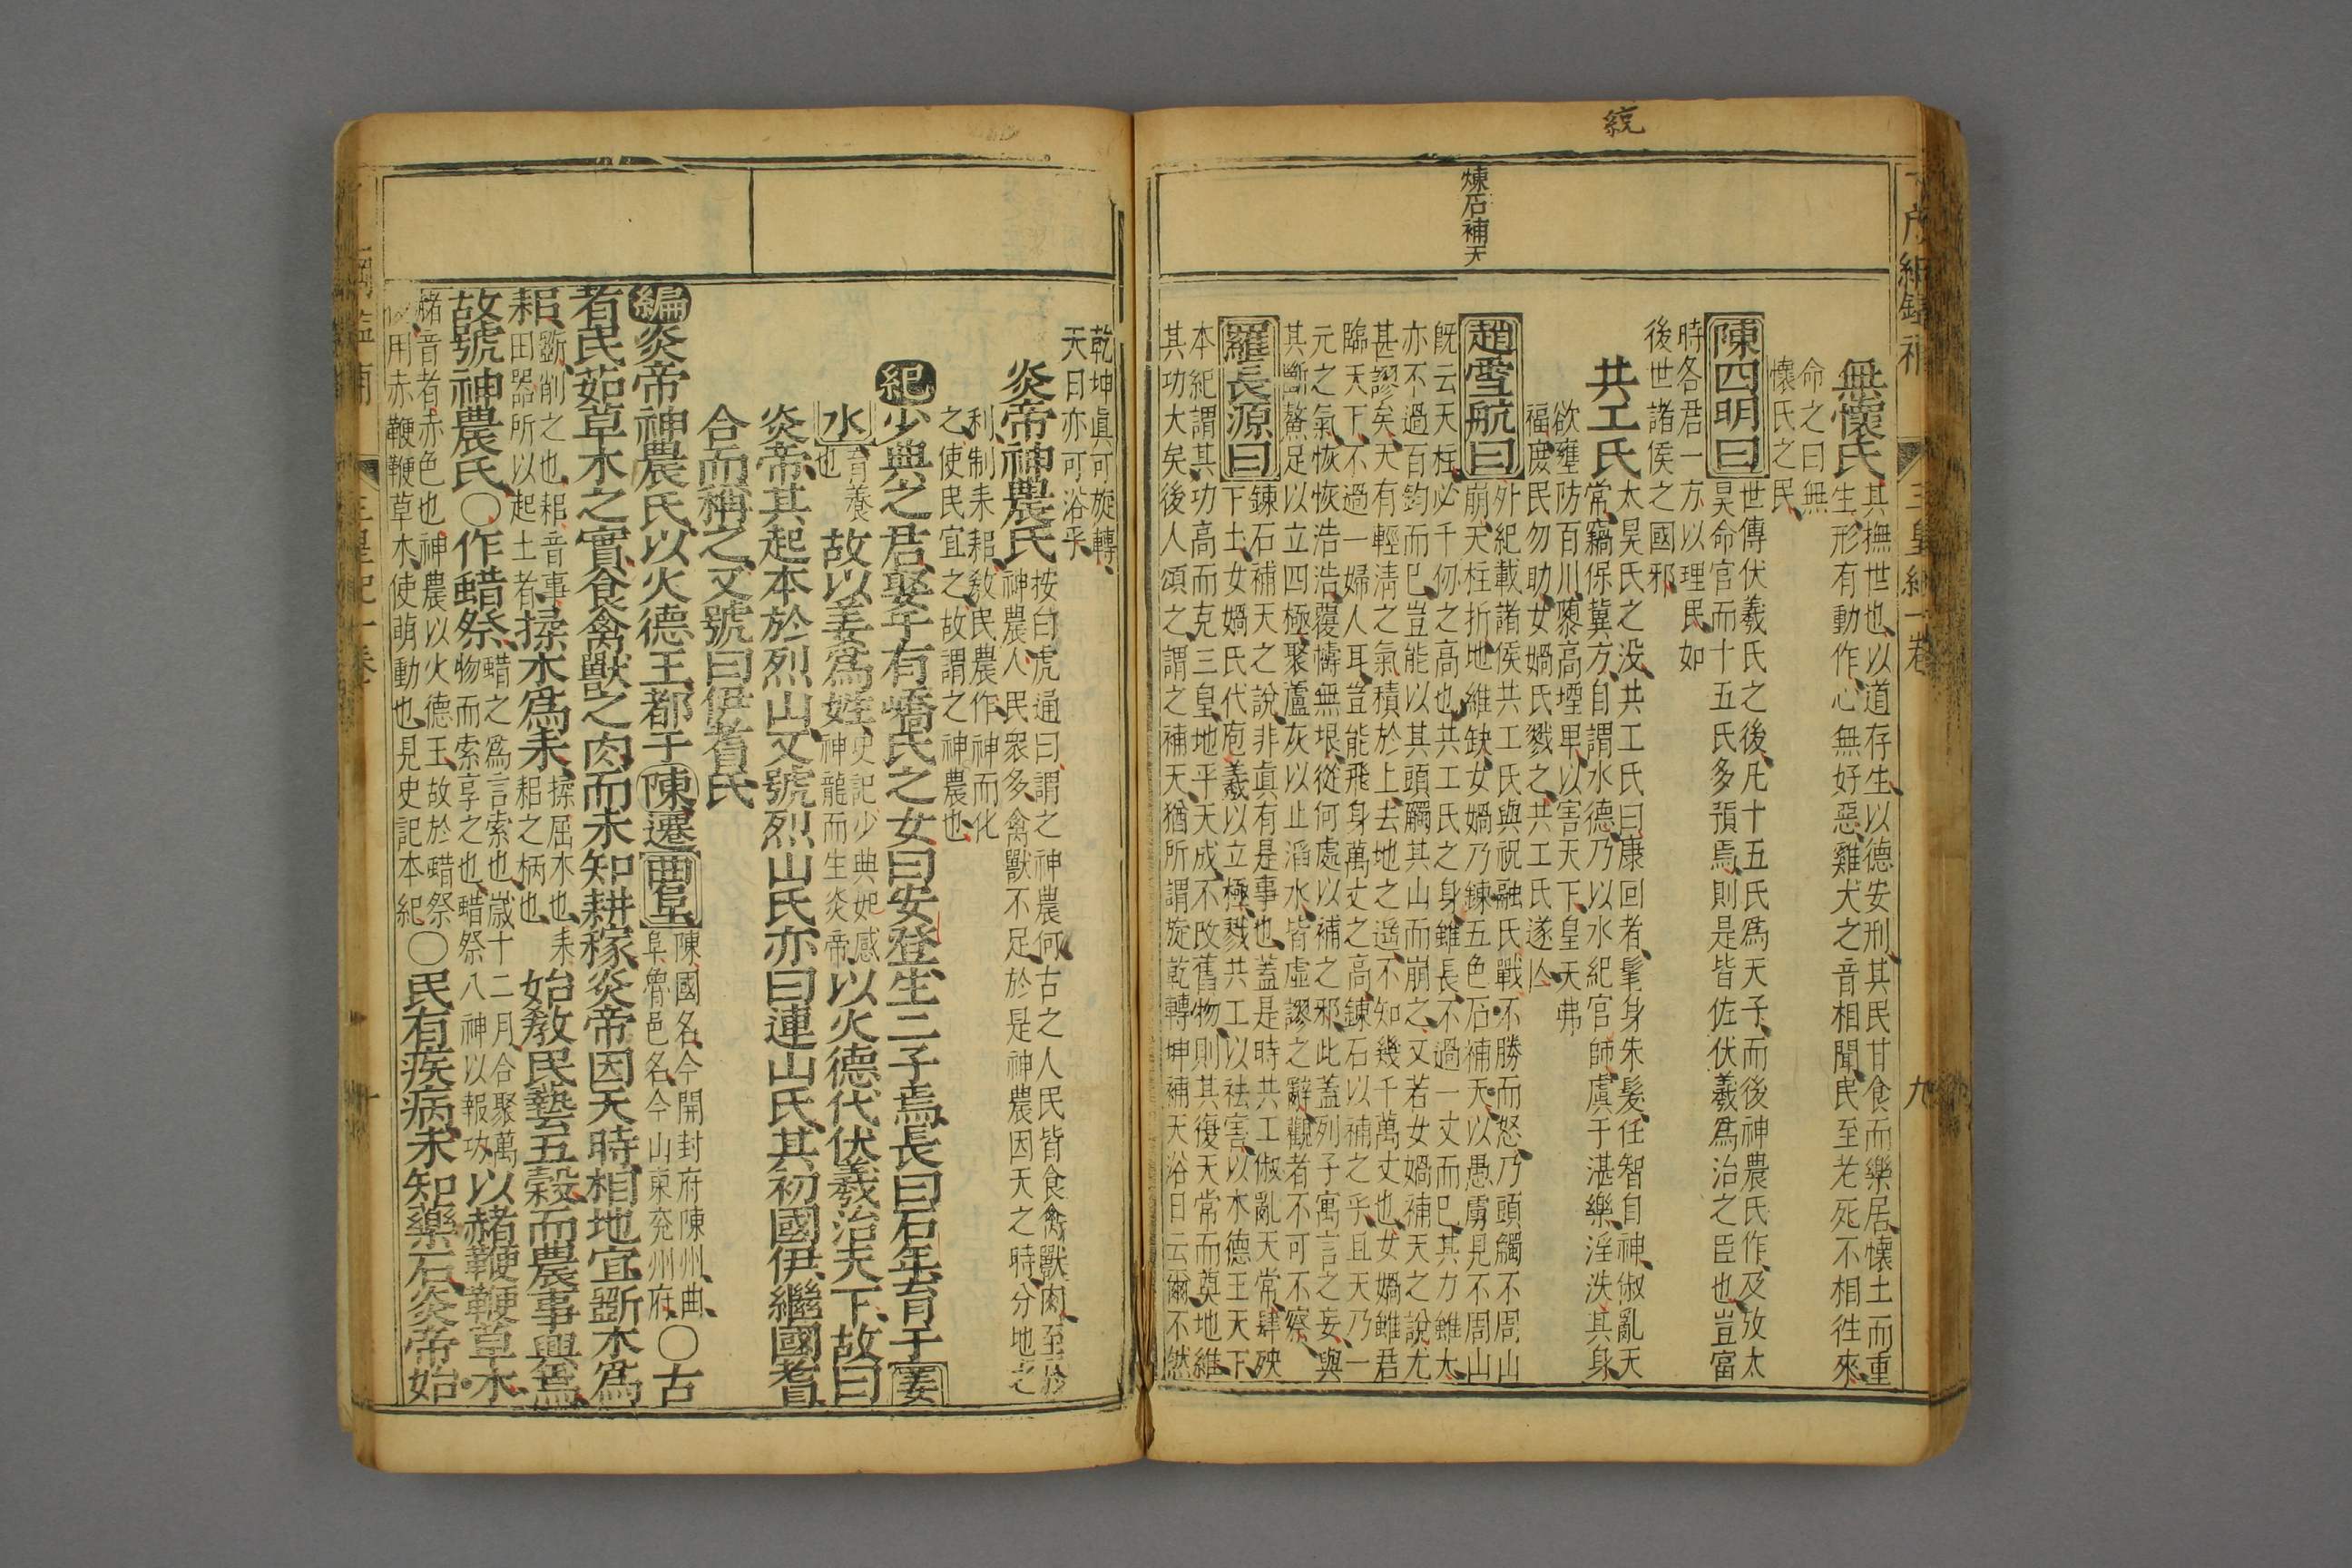 綂
煉石補天
無懷氏
其撫世也以道存生以德安刑其民甘食而樂居懷土而重
生形有動作心無好惡雞犬之音相聞民至老死不相徃來
命之曰無
懷氏之民
陳四明曰
世傳伏羲氏之後凡十五氏爲天子而後神農氏作及攷太
昊命官而十五氏多預焉則是皆佐伏羲爲治之臣也豈富
時各君一方以理民如
後世諸侯之國邪
共工氏
太昊氏之没共工氏曰康回者髦身朱髮任智自神俶亂天
常竊保冀方自謂水德乃以水紀官師虞于湛樂淫泆其身
欲壅防百川隳高堙𤰞以害天下皇天弗
福庶民勿助女媧氏戮之共工氏遂亾
趙雪航曰
外紀載諸侯共工氏與祝融氏戰不勝而怒乃頭觸不周山
崩天柱折地維缺女媧乃鍊五色石補天以愚膚見不周山
旣云天柱必千仞之高也共工氏之身雖長不過一丈而已其力雖大
亦不過百鈞而已豈能以其頭觸其山而崩之又若女媧補天之說尤
甚謬矣天有輕淸之氣積於上去地之遥不知幾千萬丈也女媧雖君
臨天下不過一婦人耳豈能飛身萬丈之高鍊石以補之乎且天乃一
元之氣恢恢浩浩覆幬無垠從何處以補之邪此蓋列子寓言之妄與
其斷鰲足以立四極聚蘆灰以止滔水皆虛謬之辭觀者不可不察
羅長源曰
鍊石補天之說非眞有是事也蓋是時共工俶亂天常肆殃
下土女媧氏代庖羲以立極戮共工以祛害以木德王天下
本紀謂其功高而克三皇地平天成不改舊物則其復天常而奠地維
其功大矣後人頌之謂之補天猶所謂旋乾轉坤補天浴日云爾不然
三皇紀一卷
九
乾坤眞可旋轉
天日亦可浴乎
炎帝神農氏
按白虎通曰謂之神農何古之人民皆食禽獸肉至於
神農人民衆多禽獸不足於是神農因天之時分地之
利制耒耜敎民農作神而化
之使民宜之故謂之神農也
紀少典之君娶于有蟜氏之女曰安登生二子焉長曰石年育于姜
水育養也故以姜爲姓史記少典妃感神龍而生炎帝以火德代伏羲治天下故曰
炎帝其起本於烈山又號烈山氏亦曰連山氏其初國伊繼國耆
合而稱之又號曰伊耆氏
編炎帝神農氏以火德王都于陳遷曲阜陳國名今開封府陳州曲阜魯邑名今山東兗州府〇古
者民茹草木之實食禽獸之肉而未知耕稼炎帝因天時相地宜斲木爲
耜斵削之也耜音事田器所以起土者揉木爲耒揉屈木也耒耜之柄也始敎民藝五穀而農事興焉
故號神農氏〇作蜡祭蜡之爲言索也歲十二月合聚萬物而索享之也蜡祭八神以報功以赭鞭鞭草木
赭音者赤色也神農以火德王故於蜡祭用赤鞭鞭草木使萌動也見史記本紀〇民有疾病未知藥石炎帝始
三皇紀一卷